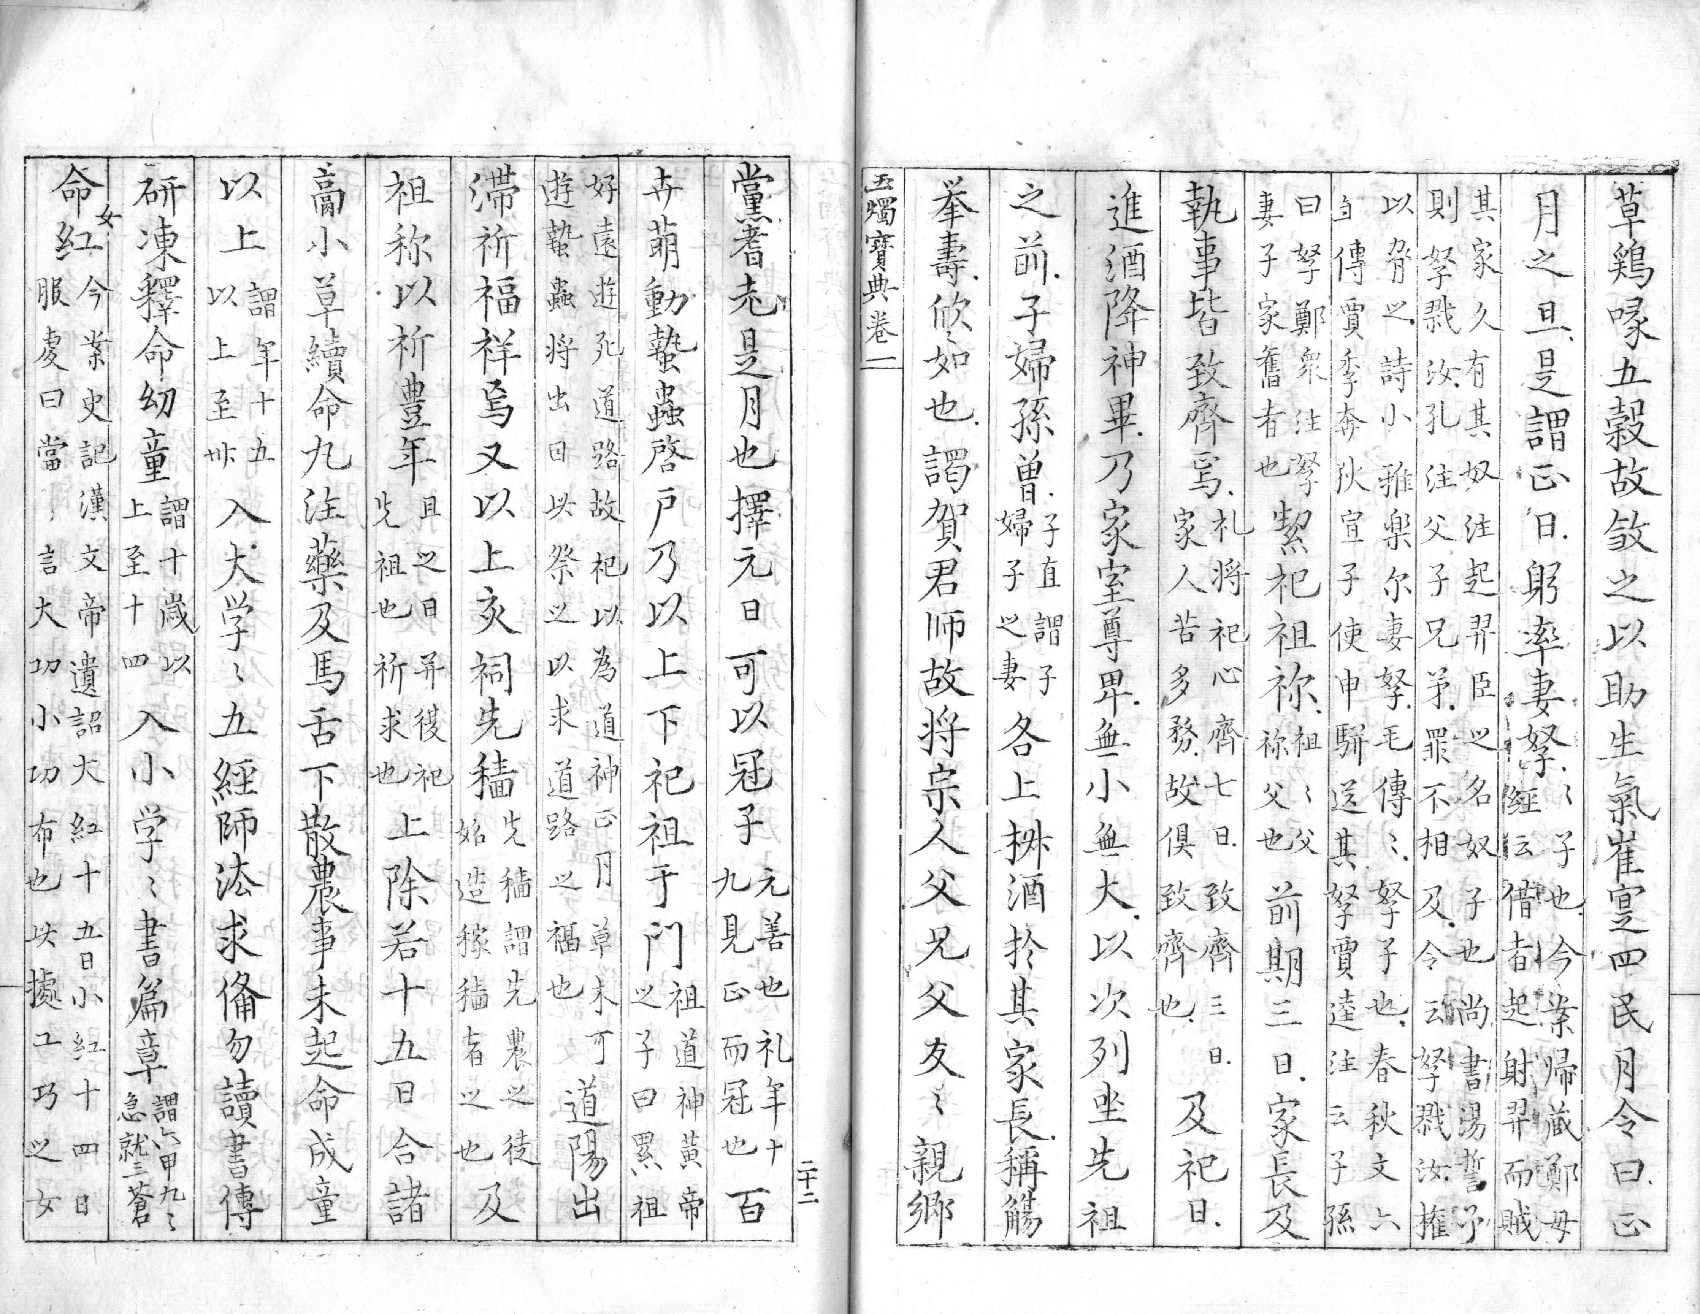 草鷄喙五穀故敛之以助生氣崔寔四民月令曰正
月之旦是謂正日躬率妻孥〻子也今案歸藏鄭母經云借者起射羿而賊
其家久有其奴注起羿臣之名奴子也尚書湯誓曰則孥戮汝孔注父子兄弟罪不相及今云孥戮汝權
以脅之詩小雅樂尔妻孥毛傳〻孥子也春秋文六年傳賈季奔狄宣子使申駢送其孥賈逵注云子孫
曰孥鄭衆注孥妻子家舊者也絜祀祖祢祖〻父祢父也前期三日家長及
執事皆致齊焉礼将祀心齊七日致齊三日家人苦多務故俱致齊也及祀日
進酒降神畢乃家室尊卑無小無大以次列坐先祖
之前子婦孫曽子直謂子婦子之妻各上椒酒於其家長稱觴
举壽欣〻如也謁賀君師故将宗人父兄父友〻親郷
玉燭寶典卷一
黨耆老是月也擇元日可以冠子元善也礼年十九見正而冠也百
卉萌動蟄蟲啓户乃以上下祀祖于門祖道神黄帝之子曰累祖
好遠遊死道路故祀以為道神正月草木可遊蟄蟲将出因此祭之以求道路之福也道陽出
滯祈福祥焉又以上亥祠先穡先穡謂先農之徒始造稼穡者之也及
祖称以祈豊年且之日并復祀先祖也祈求也上除若十五日合諸
髙小草續命九注藥及馬舌下散農事未起命成童
以上謂年十五以上至卅入大学〻五經師法求俻勿讀書傳
研凍釋命幼童謂十歳以上至十四入小学〻書篇章謂六甲九〻急就三蒼
命女紅今案史記漢文帝遺詔大紅十五日小紅十四日服虔曰當言大功小功布也此據工巧之女
二十二